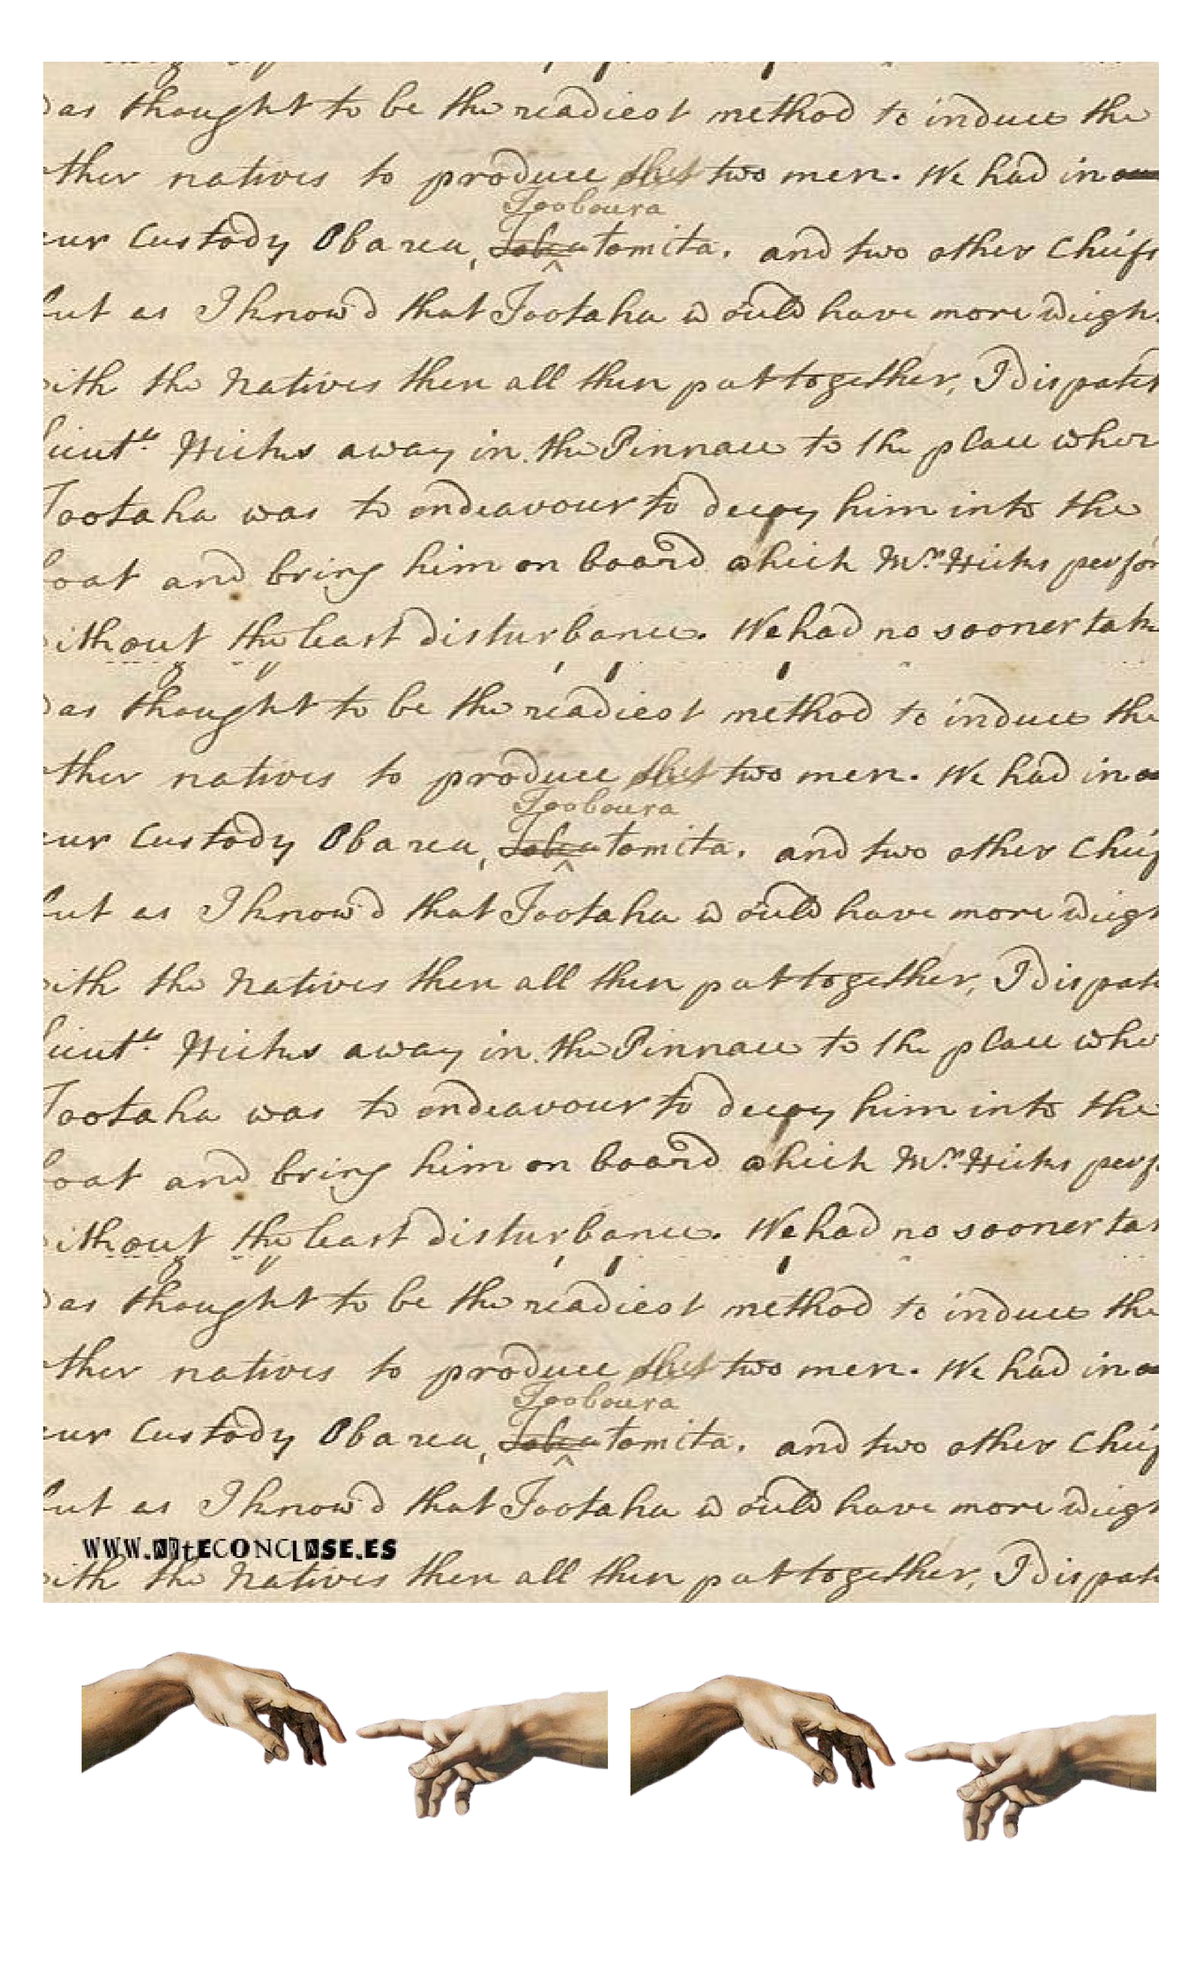 as thought to be the readiest method to induce the
ther natives to produce two men. We had in
Tooboura
our Custody Obarea, tomita, and two other Chiefs
but as I know'd that Tootaha would have more weigh
ith the Natives then all then put together, I dispatc
Lieut.t Hicks away in the Pinnace to the place wher
Tootaha was to endeavour to decoy him into the
boat and bring him on board which Mr. Hicks perfor
ithout the least disturbance. We had no sooner take
as thought to be the readiest method to induce the
ther natives to produce two men. We had in
Tooboura
our Custody Obarea, tomita, and two other Chief
but as I know'd that Tootaha would have more weigh
ith the Natives then all then put together, I dispatc
Lieut.t Hicks away in the Pinnace to the place whe
Tootaha was to endeavour to decoy him into the
boat and bring him on board which Mr. Hicks perf
ithout the least disturbance. We had no sooner tak
as thought to be the readiest method to induce the
ther natives to produce two men. We had in
Tooboura
our Custody Obarea, tomita, and two other Chief
but as I know'd that Tootaha would have more weigh
WWW.ARTECONCLASE.ES
ith the Natives then all then put together, I dispatc